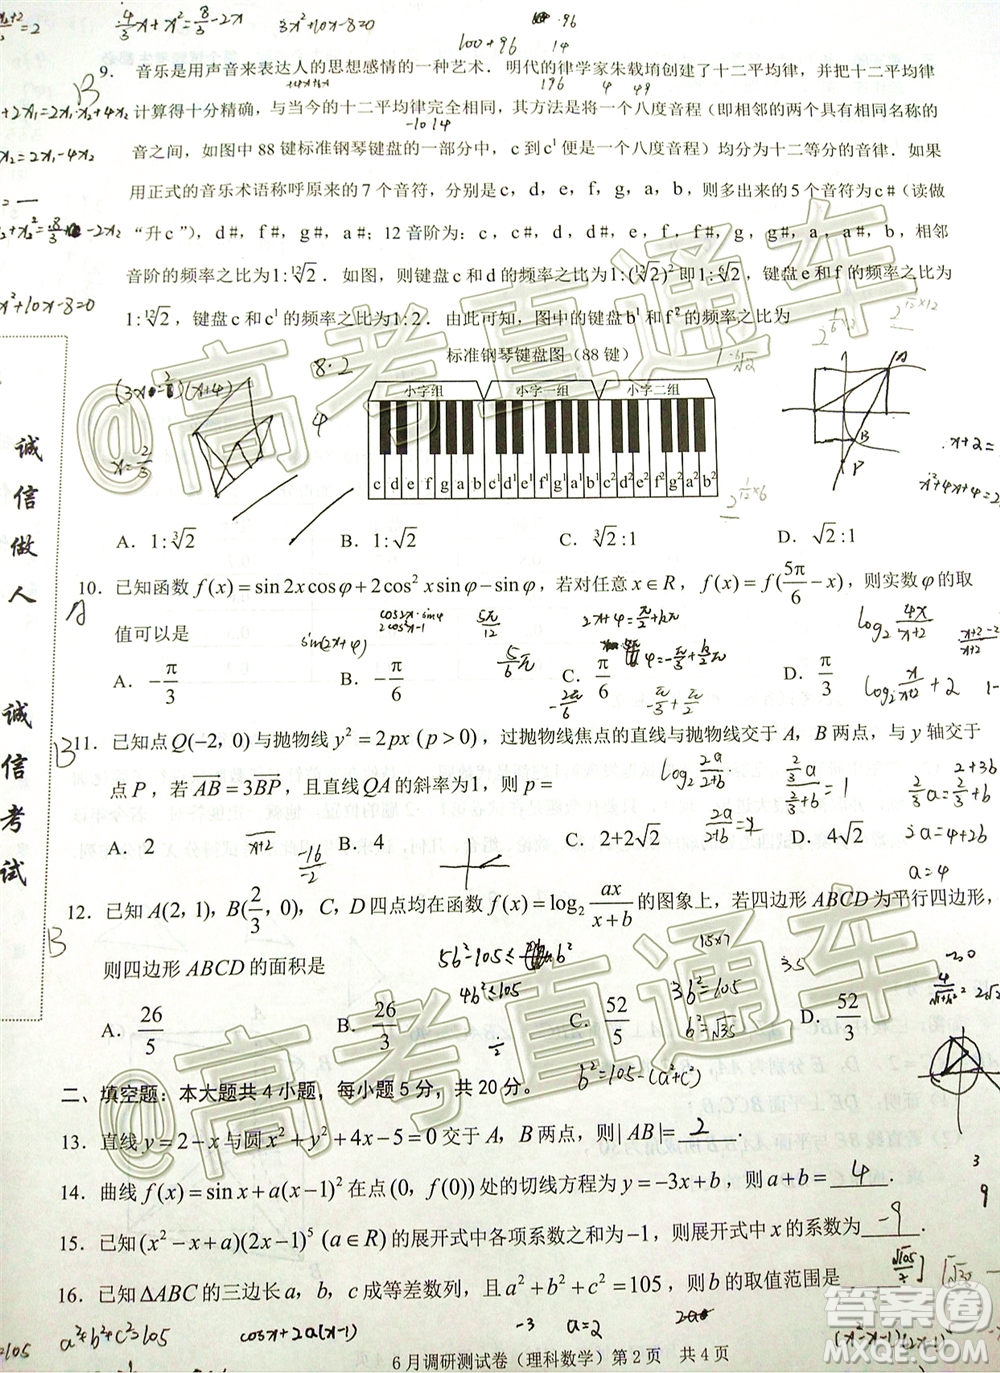 9. 音乐是用声音来表达人的思想感情的一种艺术．明代的律学家朱载堉创建了十二平均律，并把十二平均律
计算得十分精确，与当今的十二平均律完全相同，其方法是将一个八度音程（即相邻的两个具有相同名称的
音之间，如图中 88 键标准钢琴键盘的一部分中，c 到 c¹ 便是一个八度音程）均分为十二等分的音律．如果
用正式的音乐术语称呼原来的 7 个音符，分别是 c，d，e，f，g，a，b，则多出来的 5 个音符为 c#（读做
“升 c”），d#，f#，g#，a#；12 音阶为：c，c#，d，d#，e，f，f#，g，g#，a，a#，b，相邻
音阶的频率之比为 1:¹²√2．如图，则键盘 c 和 d 的频率之比为 1:(¹²√2)² 即 1:⁶√2，键盘 e 和 f 的频率之比为
1:¹²√2，键盘 c 和 c¹ 的频率之比为 1:2．由此可知，图中的键盘 b¹ 和 f² 的频率之比为
标准钢琴键盘图（88 键）
小字组 小字一组 小字二组
c d e f g a b c¹ d¹ e¹ f¹ g¹ a¹ b¹ c² d² e² f² g² a² b²
A．1:³√2 B．1:√2 C．³√2:1 D．√2:1
10．已知函数 f(x)=sin2xcosφ+2cos²xsinφ−sinφ，若对任意 x∈R，f(x)=f(5π/6−x)，则实数 φ 的取
值可以是
A．−π/3 B．−π/6 C．π/6 D．π/3
11．已知点 Q(−2, 0) 与抛物线 y²=2px (p>0)，过抛物线焦点的直线与抛物线交于 A，B 两点，与 y 轴交于
点 P，若 AB=3BP，且直线 QA 的斜率为 1，则 p=
A．2 B．4 C．2+2√2 D．4√2
12．已知 A(2, 1), B(2/3, 0), C, D 四点均在函数 f(x)=log₂ ax/(x+b) 的图象上，若四边形 ABCD 为平行四边形，
则四边形 ABCD 的面积是
A．26/5 B．26/3 C．52/5 D．52/3
二、填空题：本大题共 4 小题，每小题 5 分，共 20 分。
13．直线 y=2−x 与圆 x²+y²+4x−5=0 交于 A，B 两点，则 |AB|= 2 ．
14．曲线 f(x)=sinx+a(x−1)² 在点 (0, f(0)) 处的切线方程为 y=−3x+b，则 a+b= 4 ．
15．已知 (x²−x+a)(2x−1)⁵ (a∈R) 的展开式中各项系数之和为 −1，则展开式中 x 的系数为 −9 ．
16．已知 ΔABC 的三边长 a，b，c 成等差数列，且 a²+b²+c²=105，则 b 的取值范围是
6 月调研测试卷（理科数学）第 2 页 共 4 页
诚信做人 诚信考试
@高考直通车
@高考直通车
答案圈
4/3x+x²=8/3−2x
3x²+10x−8=0
100+96
x²+10x−8=0
x=2/3
sin(2x+φ)
5b²−105≤
4b²≤105
3b²=105
b²=√35
b²=105−(a²+c²)
a=4
a²+b²+c²=105
cosx+2a(x−1)
a=2